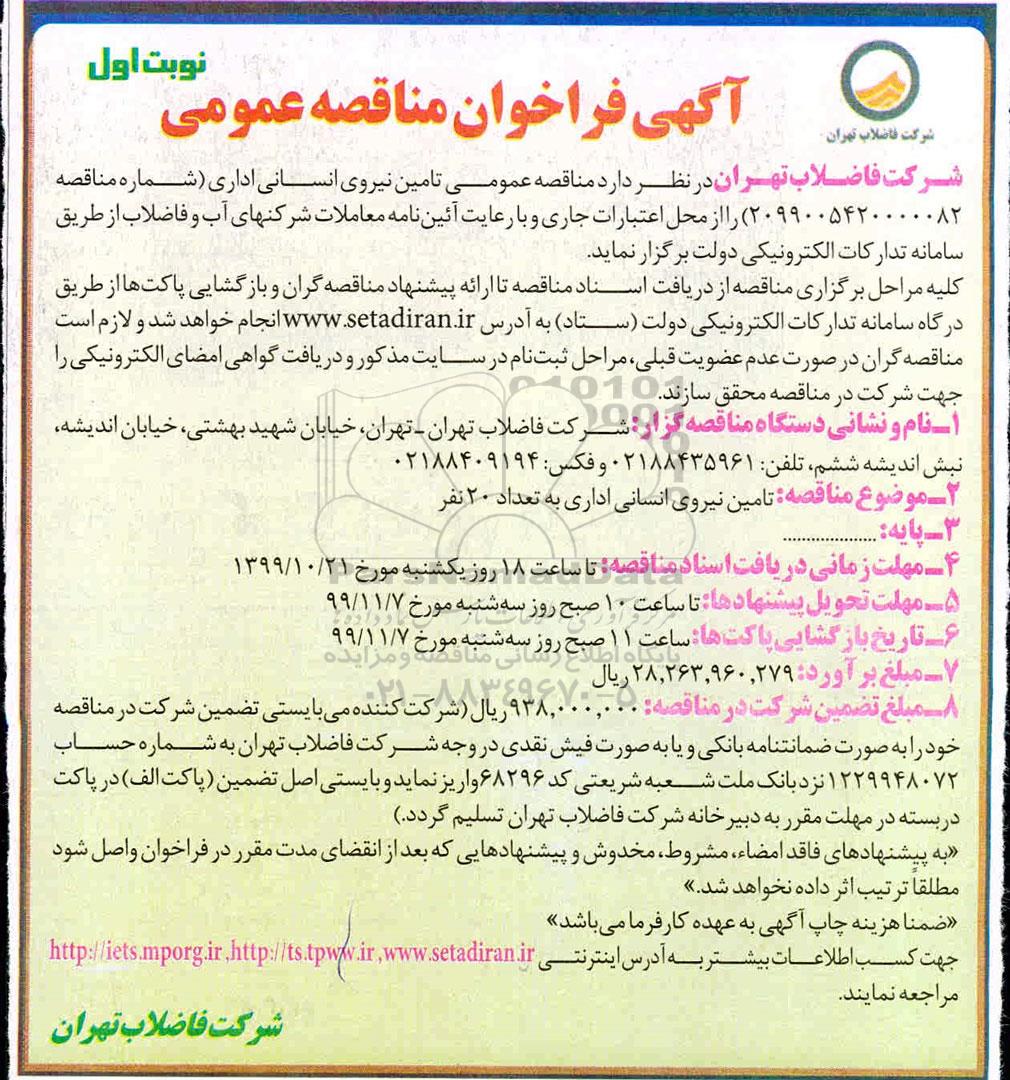 نوبت اول
آگهی فراخوان مناقصه عمومی
شرکت فاضلاب تهران
شرکت فاضلاب تهران در نظر دارد مناقصه عمومی تامین نیروی انسانی اداری (شماره مناقصه
۲۰۹۹۰۰۵۴۲۰۰۰۰۰۸۲) را از محل اعتبارات جاری و با رعایت آئین‌نامه معاملات شرکتهای آب و فاضلاب از طریق
سامانه تدارکات الکترونیکی دولت برگزار نماید.
کلیه مراحل برگزاری مناقصه از دریافت اسناد مناقصه تا ارائه پیشنهاد مناقصه‌گران و بازگشایی پاکت‌ها از طریق
درگاه سامانه تدارکات الکترونیکی دولت (ستاد) به آدرس www.setadiran.ir انجام خواهد شد و لازم است
مناقصه‌گران در صورت عدم عضویت قبلی، مراحل ثبت‌نام در سایت مذکور و دریافت گواهی امضای الکترونیکی را
جهت شرکت در مناقصه محقق سازند.
۱ـ نام و نشانی دستگاه مناقصه گزار: شرکت فاضلاب تهران ـ تهران، خیابان شهید بهشتی، خیابان اندیشه،
نبش اندیشه ششم، تلفن: ۰۲۱۸۸۴۳۵۹۶۱ و فکس: ۰۲۱۸۸۴۰۹۱۹۴
۲ـ موضوع مناقصه: تامین نیروی انسانی اداری به تعداد ۲۰ نفر
۳ـ پایه: ....................
۴ـ مهلت زمانی دریافت اسناد مناقصه: تا ساعت ۱۸ روز یکشنبه مورخ ۱۳۹۹/۱۰/۲۱
۵ـ مهلت تحویل پیشنهادها: تا ساعت ۱۰ صبح روز سه‌شنبه مورخ ۹۹/۱۱/۷
۶ـ تاریخ بازگشایی پاکت‌ها: ساعت ۱۱ صبح روز سه‌شنبه مورخ ۹۹/۱۱/۷
۷ـ مبلغ برآورد: ۲۸,۲۶۳,۹۶۰,۲۷۹ ریال
۸ـ مبلغ تضمین شرکت در مناقصه: ۹۳۸,۰۰۰,۰۰۰ ریال (شرکت کننده می‌بایستی تضمین شرکت در مناقصه
خود را به صورت ضمانتنامه بانکی و یا به صورت فیش نقدی در وجه شرکت فاضلاب تهران به شماره حساب
۱۲۲۹۹۴۸۰۷۲ نزد بانک ملت شعبه شریعتی کد ۶۸۲۹۶ واریز نماید و بایستی اصل تضمین (پاکت الف) در پاکت
دربسته در مهلت مقرر به دبیرخانه شرکت فاضلاب تهران تسلیم گردد.)
«به پیشنهادهای فاقد امضاء، مشروط، مخدوش و پیشنهادهایی که بعد از انقضای مدت مقرر در فراخوان واصل شود
مطلقاً ترتیب اثر داده نخواهد شد.»
«ضمنا هزینه چاپ آگهی به عهده کارفرما می‌باشد»
جهت کسب اطلاعات بیشتر به آدرس اینترنتی http://iets.mporg.ir ,http://ts.tpww.ir ,www.setadiran.ir
مراجعه نمایند.
شرکت فاضلاب تهران
ParsNamadData
پایگاه اطلاع رسانی مناقصه و مزایده
۰۲۱-۸۸۳۴۹۶۷۰-۵